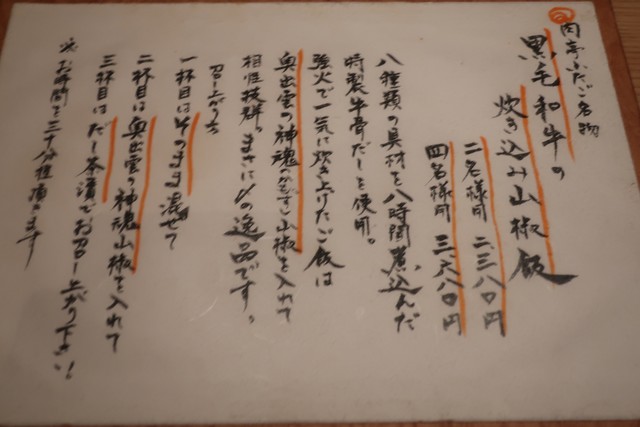 肉亭ふたご名物
黒毛和牛の
炊き込み山椒飯
二名様用 二、三八〇円
四名様用 三、六八〇円
八種類の具材を八時間煮込んだ
特製牛骨だしを使用。
強火で一気に炊き上げたご飯は
奥出雲の神魂かぐわし山椒を入れて
相性抜群。まさに の逸品です。
召し上がり方
一杯目はそのまま混ぜて
二杯目は奥出雲の神魂山椒を入れて
三杯目はだし茶漬でお召し上がり下さい!
※お時間を三十分程頂きます